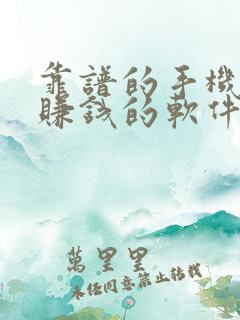 靠譜的手機
賺錢的軟件
萬里里
未經同意禁止轉載